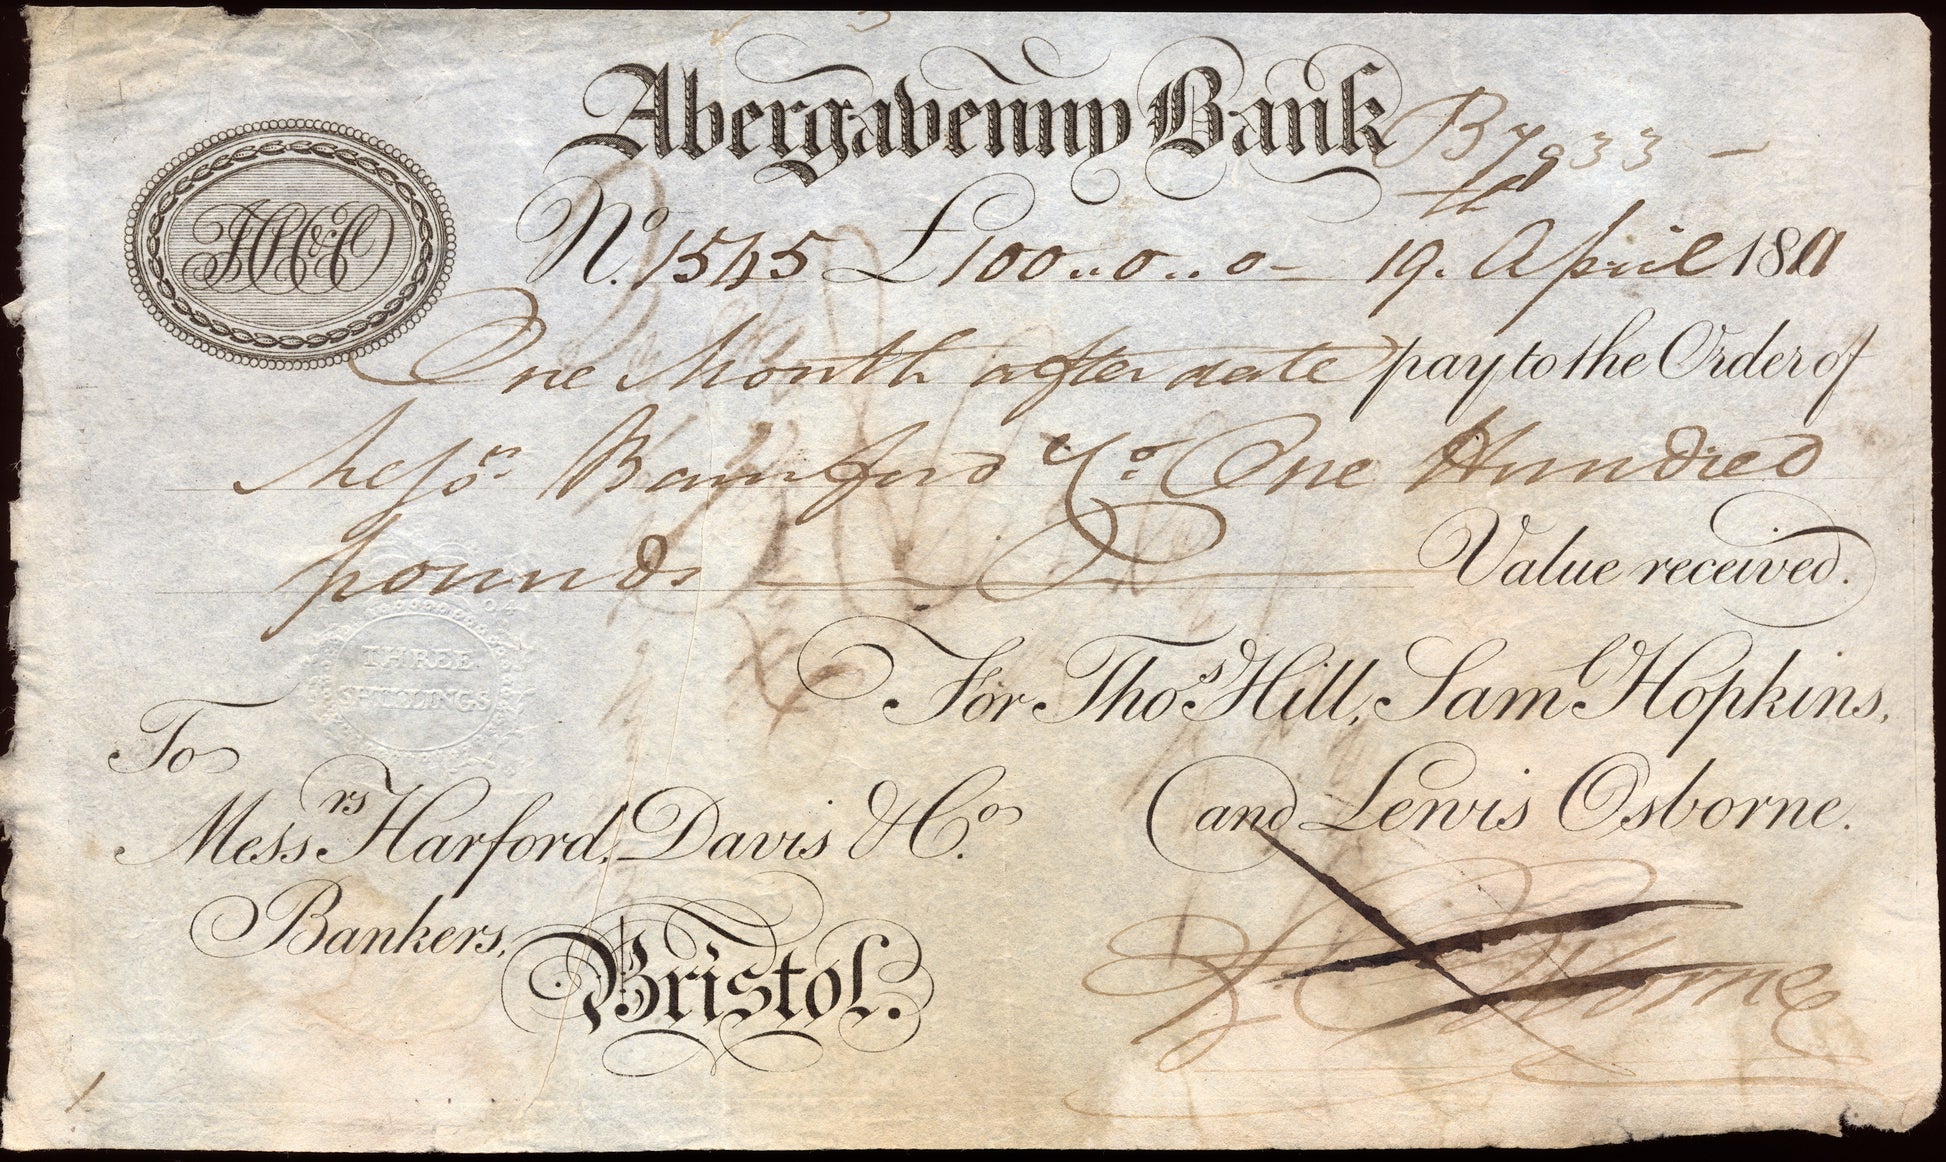 Abergavenny Bank
By 933 —
No. 1545 £100..0..0— 19. April 181
One Month after date pay to the Order of
Messrs. Bamford & Co. One Hundred
pounds Value received.
THREE
SHILLINGS
For Thos. Hill, Saml. Hopkins,
and Lewis Osborne.
To
Messrs Harford, Davis & Co.
Bankers,
Bristol.
L Osborne